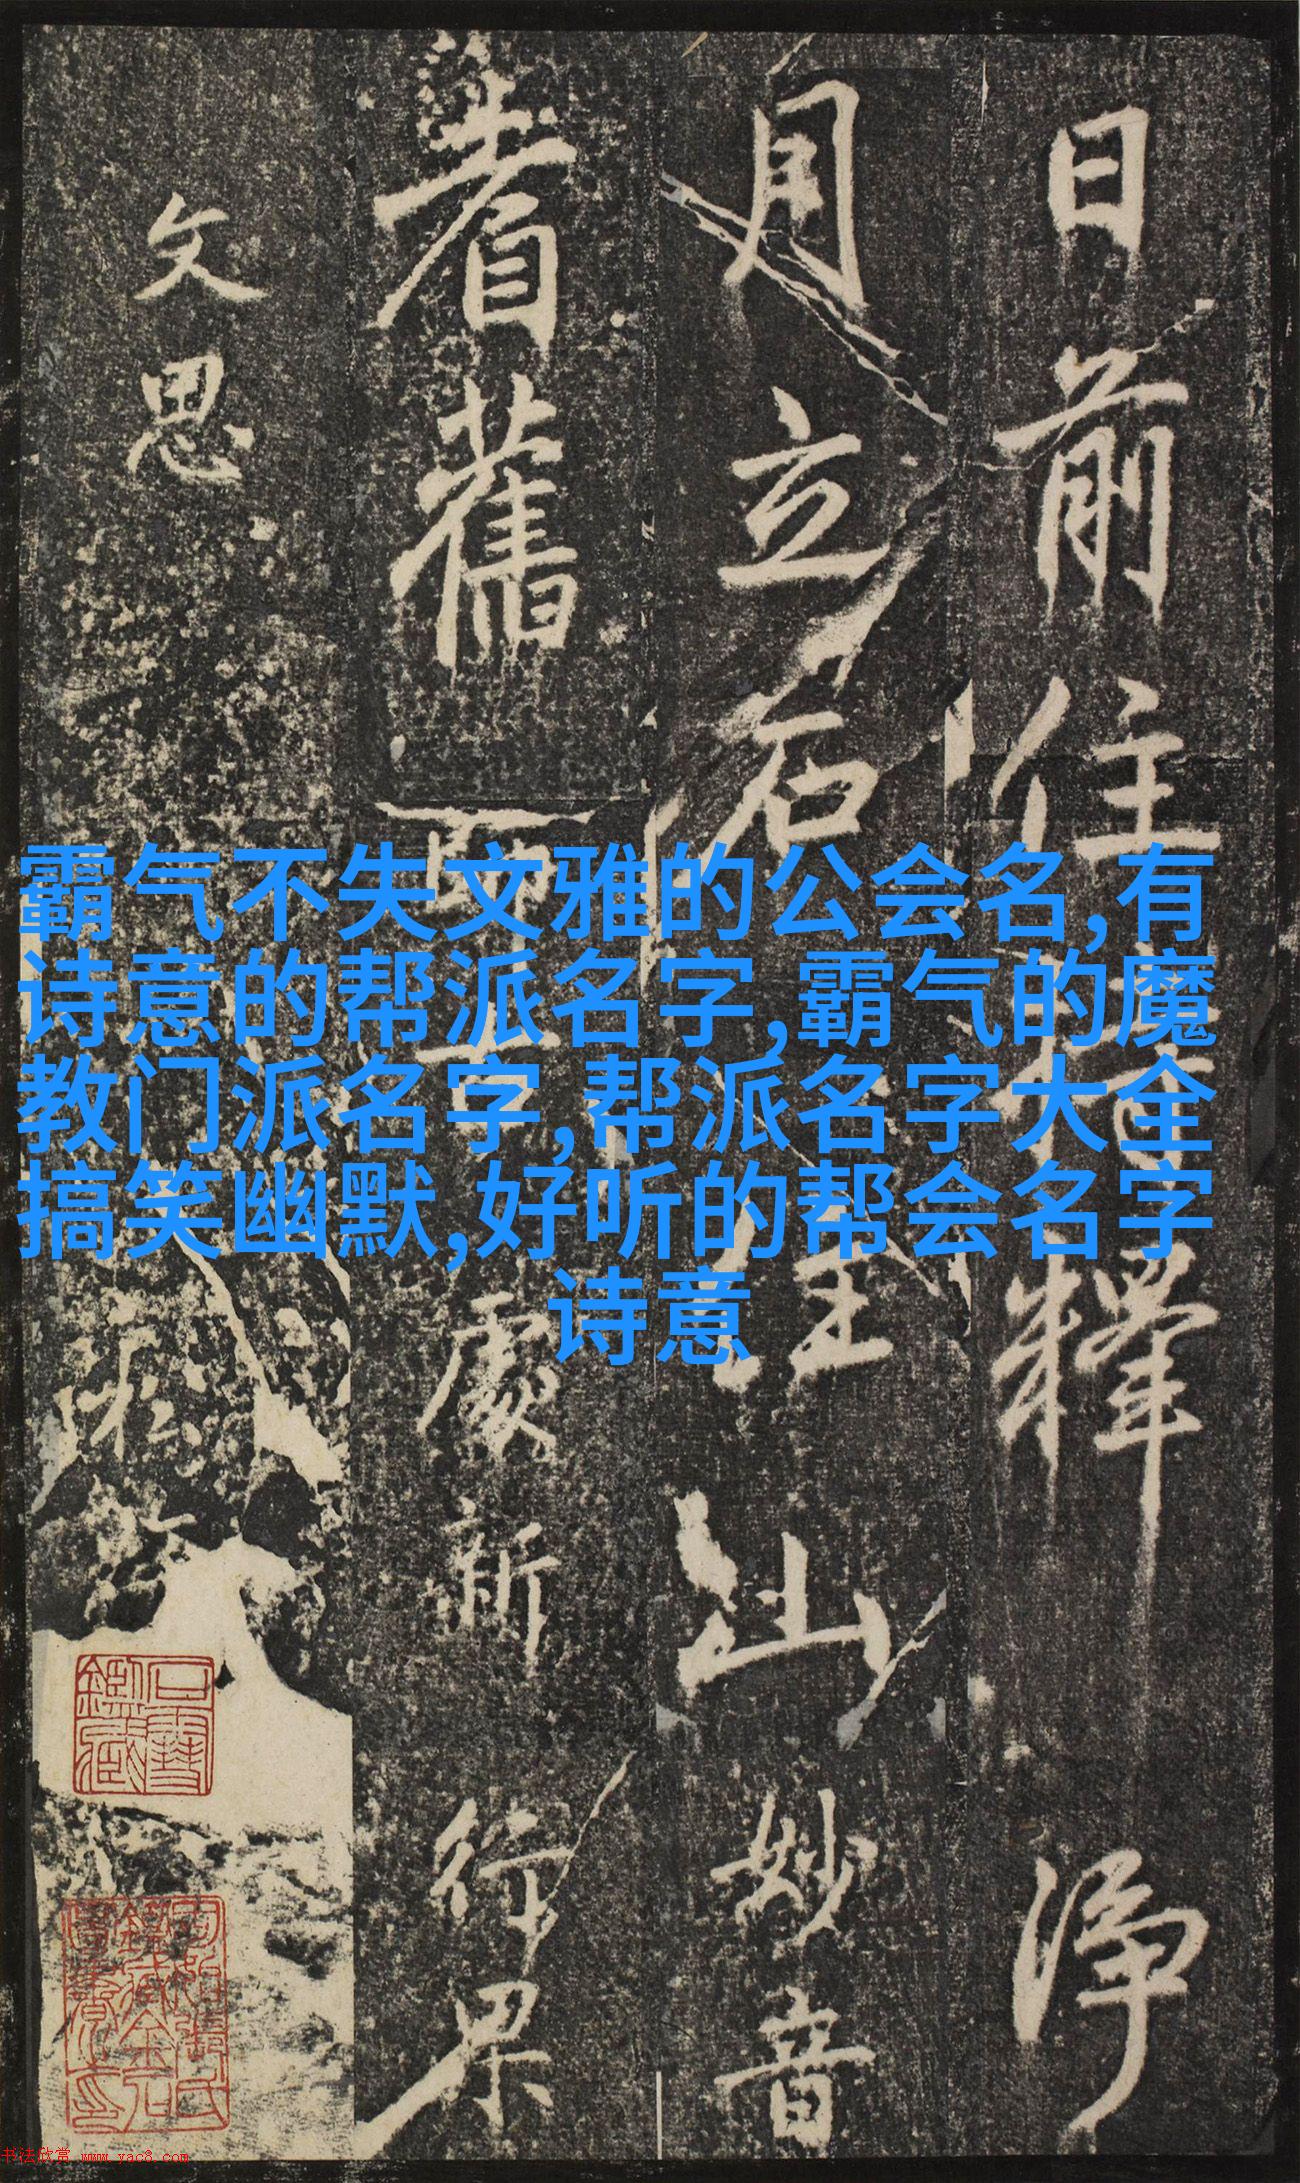 霸气不失文雅的公会名,有
诗意的帮派名字,霸气的魔
教门派名字,帮派名字大全
搞笑幽默,好听的帮会名字
诗意
日前住 釋 淨
月立石 山妙音
耆舊 處新行果
文思
书法欣赏 www.yac8.com